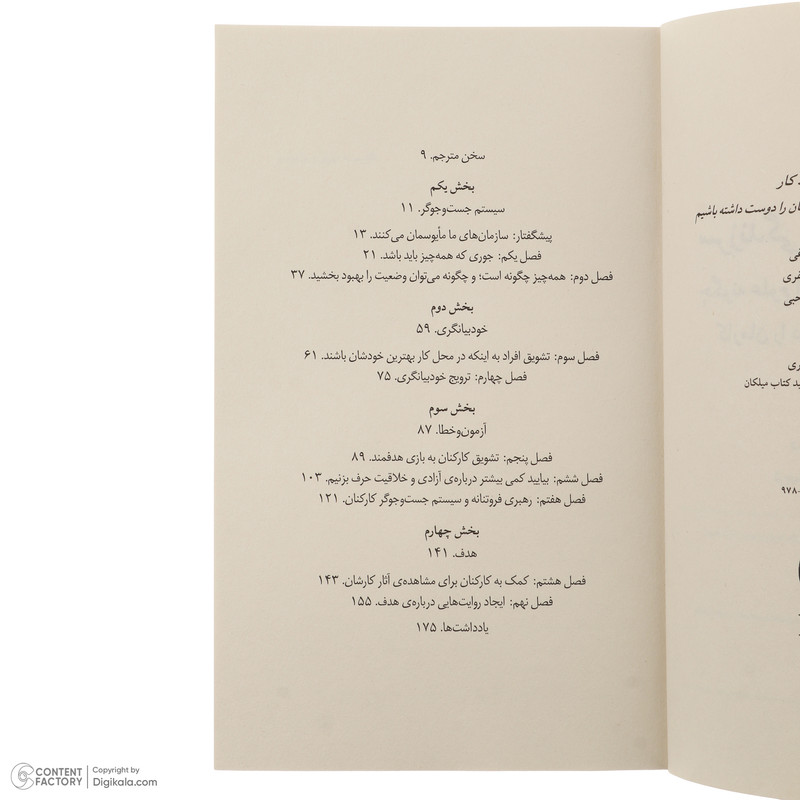 سخن مترجم. ۹
بخش یکم
سیستم جست‌وجوگر. ۱۱
پیشگفتار: سازمان‌های ما مأیوسمان می‌کنند. ۱۳
فصل یکم: جوری که همه‌چیز باید باشد. ۲۱
فصل دوم: همه‌چیز چگونه است؛ و چگونه می‌توان وضعیت را بهبود بخشید. ۳۷
بخش دوم
خودبیانگری. ۵۹
فصل سوم: تشویق افراد به اینکه در محل کار بهترین خودشان باشند. ۶۱
فصل چهارم: ترویج خودبیانگری. ۷۵
بخش سوم
آزمون‌وخطا. ۸۷
فصل پنجم: تشویق کارکنان به بازی هدفمند. ۸۹
فصل ششم: بیایید کمی بیشتر درباره‌ی آزادی و خلاقیت حرف بزنیم. ۱۰۳
فصل هفتم: رهبری فروتنانه و سیستم جست‌وجوگر کارکنان. ۱۲۱
بخش چهارم
هدف. ۱۴۱
فصل هشتم: کمک به کارکنان برای مشاهده‌ی آثار کارشان. ۱۴۳
فصل نهم: ایجاد روایت‌هایی درباره‌ی هدف. ۱۵۵
یادداشت‌ها. ۱۷۵
کار
را دوست داشته باشیم
کتاب میلکان
۹۷۸-
CONTENT FACTORY
Copyright by
Digikala.com